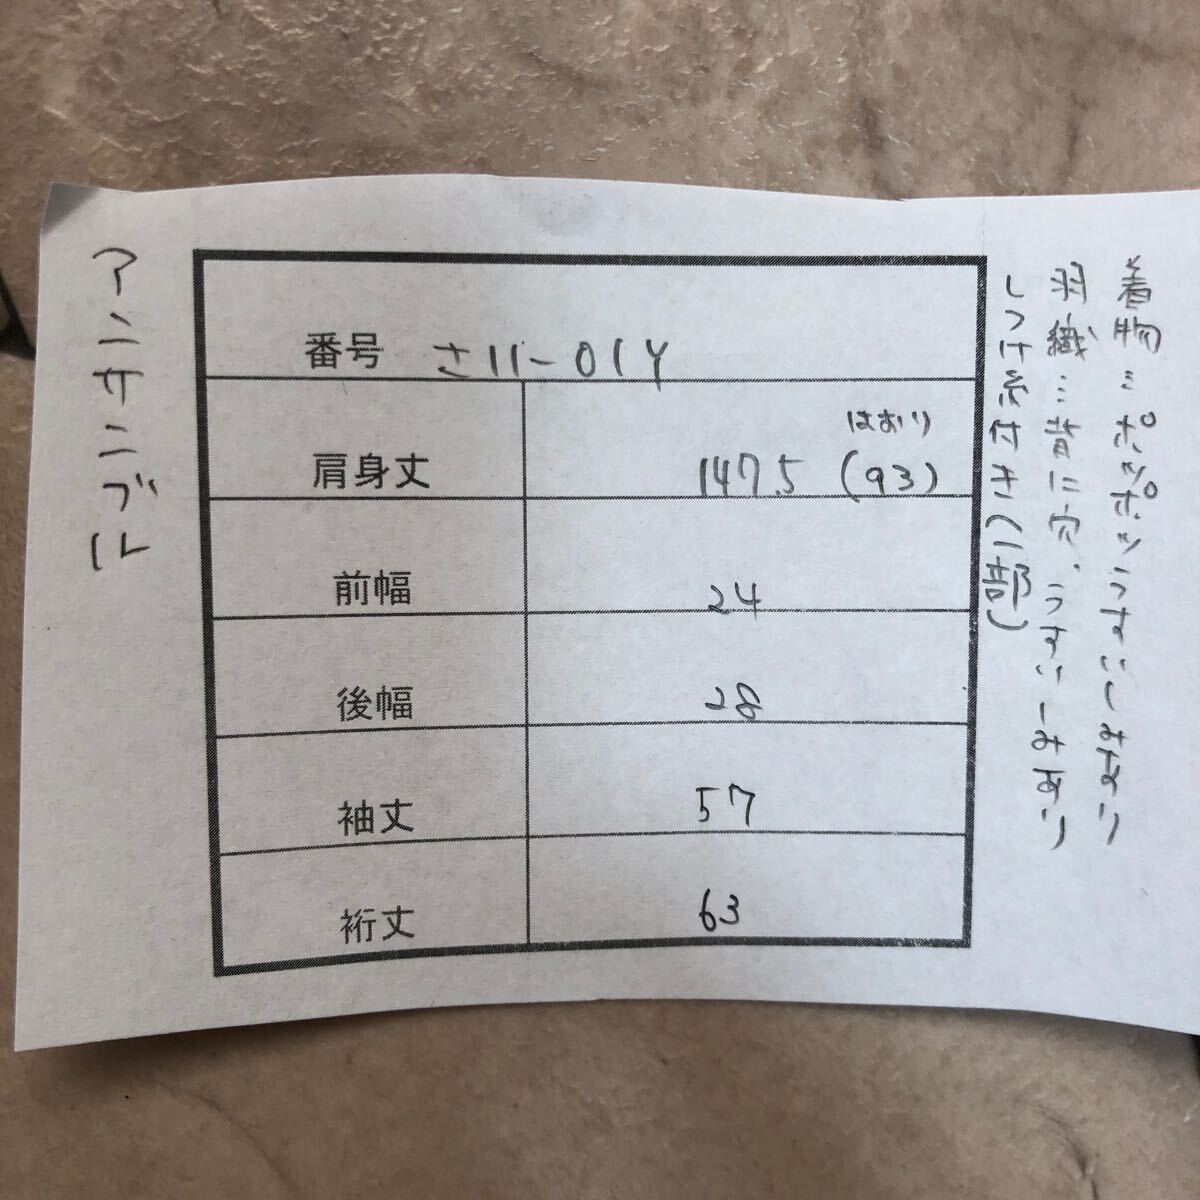 着物…ポツポツうすいしみあり
羽織…背に穴、うすいしみあり
しつけ糸付き(一部)
番号 さ11-01Y
はおり
肩身丈 147.5 (93)
前幅 24
後幅 28
袖丈 57
裄丈 63
アンサンブル